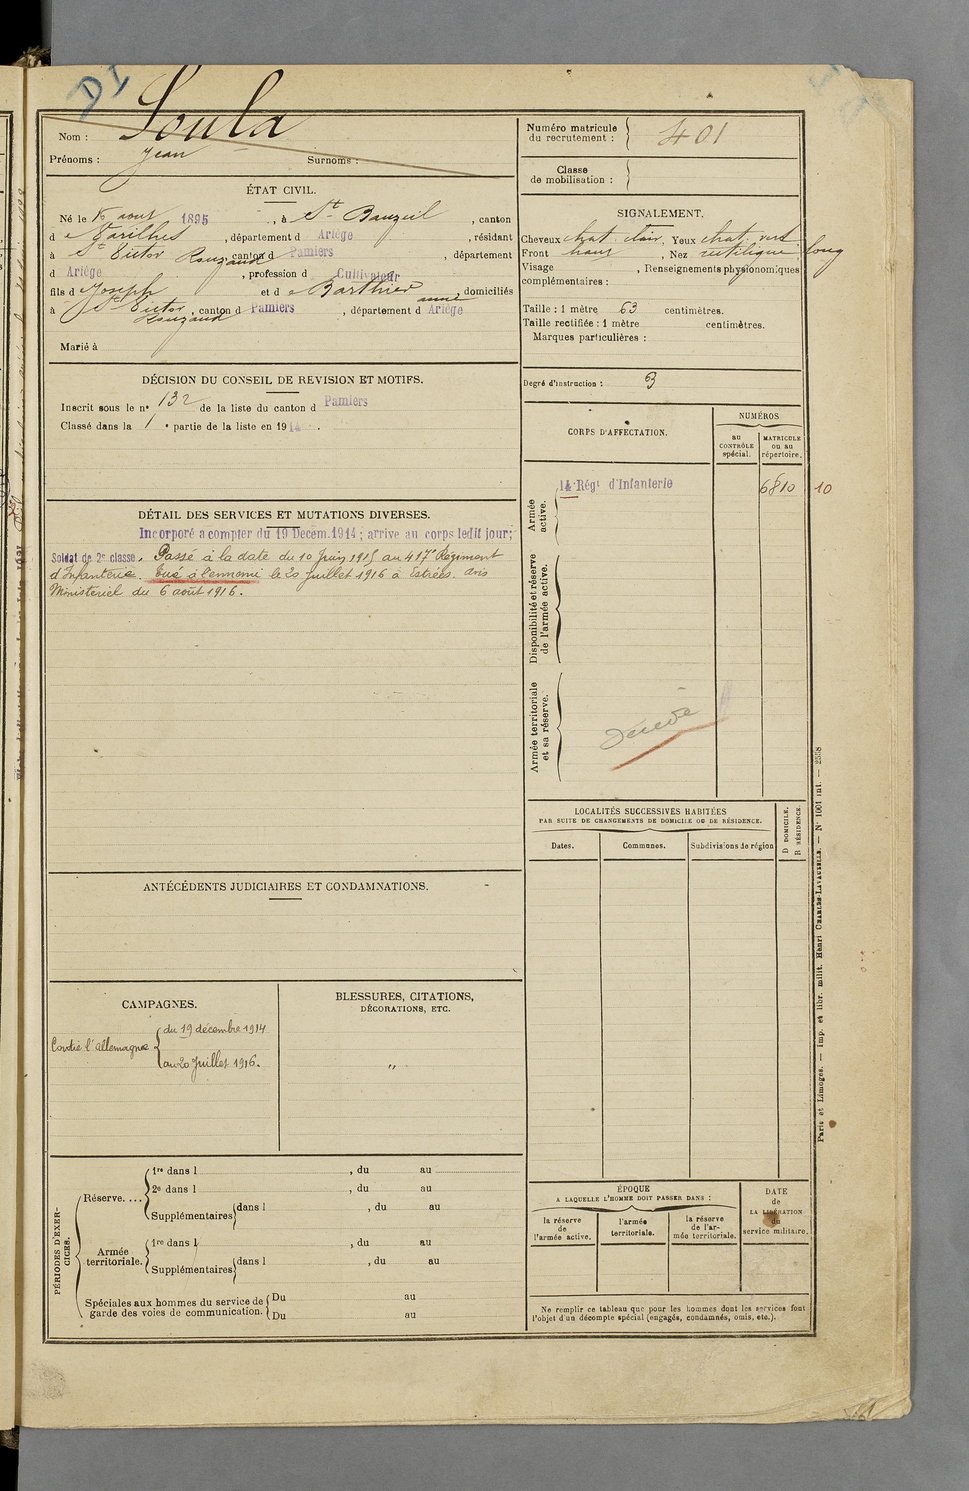 DI
Nom : Soula
Prénoms : Jean Surnoms :
Numéro matricule du recrutement : 401
Classe de mobilisation :
ÉTAT CIVIL.
Né le août 1895, à St Bauzeil, canton
d e Varilhes, département d Ariége, résidant
à St Victor Rouzaud, canton d Pamiers, département
d Ariége, profession d Cultivateur
fils d e Joseph et d e Barthier anne, domiciliés
à St Victor Rouzaud, canton d Pamiers, département d Ariége
Marié à
SIGNALEMENT.
Cheveux chat. clair, Yeux chat. vert
Front haut, Nez rectiligne long
Visage , Renseignements physionomiques
complémentaires :
Taille : 1 mètre 63 centimètres.
Taille rectifiée : 1 mètre centimètres.
Marques particulières :
Degré d'instruction : 3
DÉCISION DU CONSEIL DE REVISION ET MOTIFS.
Inscrit sous le n° 132 de la liste du canton d Pamiers
Classé dans la 1e partie de la liste en 1914.
CORPS D'AFFECTATION.
NUMÉROS
au CONTRÔLE spécial.
MATRICULE ou au répertoire.
Armée active.
14e Régt d'Infanterie 6810 10
Disponibilité et réserve de l'armée active.
Armée territoriale et sa réserve.
DÉTAIL DES SERVICES ET MUTATIONS DIVERSES.
Incorporé a compter du 19 Décem. 1914 ; arrive au corps ledit jour;
Soldat de 2e classe. Passé à la date du 10 Juin 1915 au 417e Régiment
d'Infanterie. Tué à l'ennemi le 20 Juillet 1916 à Estrées. avis
Ministeriel du 6 août 1916.
LOCALITÉS SUCCESSIVES HABITÉES
PAR SUITE DE CHANGEMENTS DE DOMICILE OU DE RÉSIDENCE.
Dates. Communes. Subdivisions de région
D DOMICILE.
R RÉSIDENCE.
ANTÉCÉDENTS JUDICIAIRES ET CONDAMNATIONS.
CAMPAGNES.
Contre l'allemagne
du 19 décembre 1914
au 20 Juillet 1916.
BLESSURES, CITATIONS,
DÉCORATIONS, ETC.
"
PÉRIODES D'EXERCICES.
Réserve....
1re dans l , du au
2e dans l , du au
Supplémentaires dans l , du au
Armée territoriale.
1re dans l , du au
Supplémentaires dans l , du au
Spéciales aux hommes du service de
garde des voies de communication.
Du au
Du au
ÉPOQUE
A LAQUELLE L'HOMME DOIT PASSER DANS :
la réserve de l'armée active.
l'armée territoriale.
la réserve de l'armée territoriale.
DATE de LA LIBÉRATION du service militaire.
Ne remplir ce tableau que pour les hommes dont les services font
l'objet d'un décompte spécial (engagés, condamnés, omis, etc.).
Paris et Limoges. — Imp. et libr. milit. Henri CHARLES-LAVAUZELLE. — N° 1001 int. — 2558